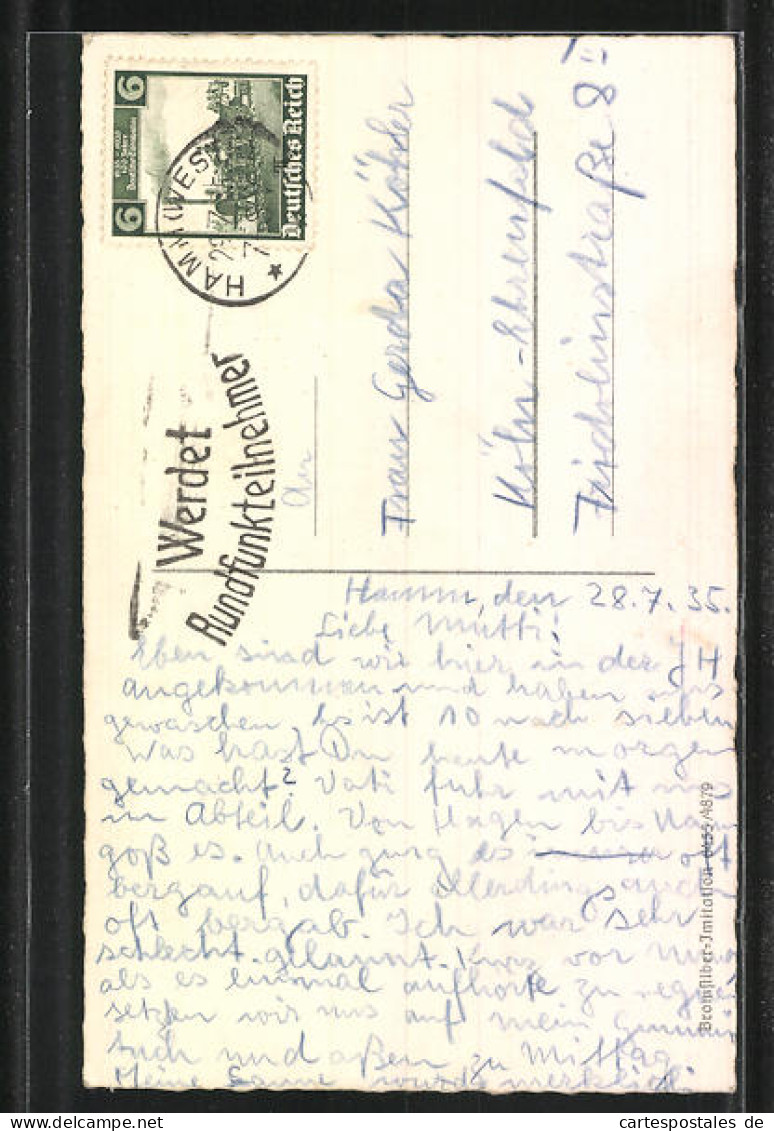 6
6
Deutsches Reich
HAMM (WESTF
Werdet
Rundfunkteilnehmer
An
Frau Gerda Köhler
Köln-Ehrenfeld
Fridolinstraße 8 II
Hamm, den 28.7.35.
Liebe Mutti!
Eben sind wir hier in der JH
angekommen und haben uns
gewaschen. Es ist 10 nach sieben
Was hast Du heute morgen
gemacht? Vati fuhr mit uns
im Abteil. Von Hagen bis Hamm
goß es. Auch ging es oft
bergauf, dafür allerdings auch
oft bergab. Ich war sehr
schlecht gelaunt. Kurz vor
als es einmal aufhörte zu regnen
setzten wir uns auf mein Gummi
tuch und aßen zu Mittag.
Meine Laune wurde merklich
Bromsilber-Imitation 0455/4879
www.cartespostales.de